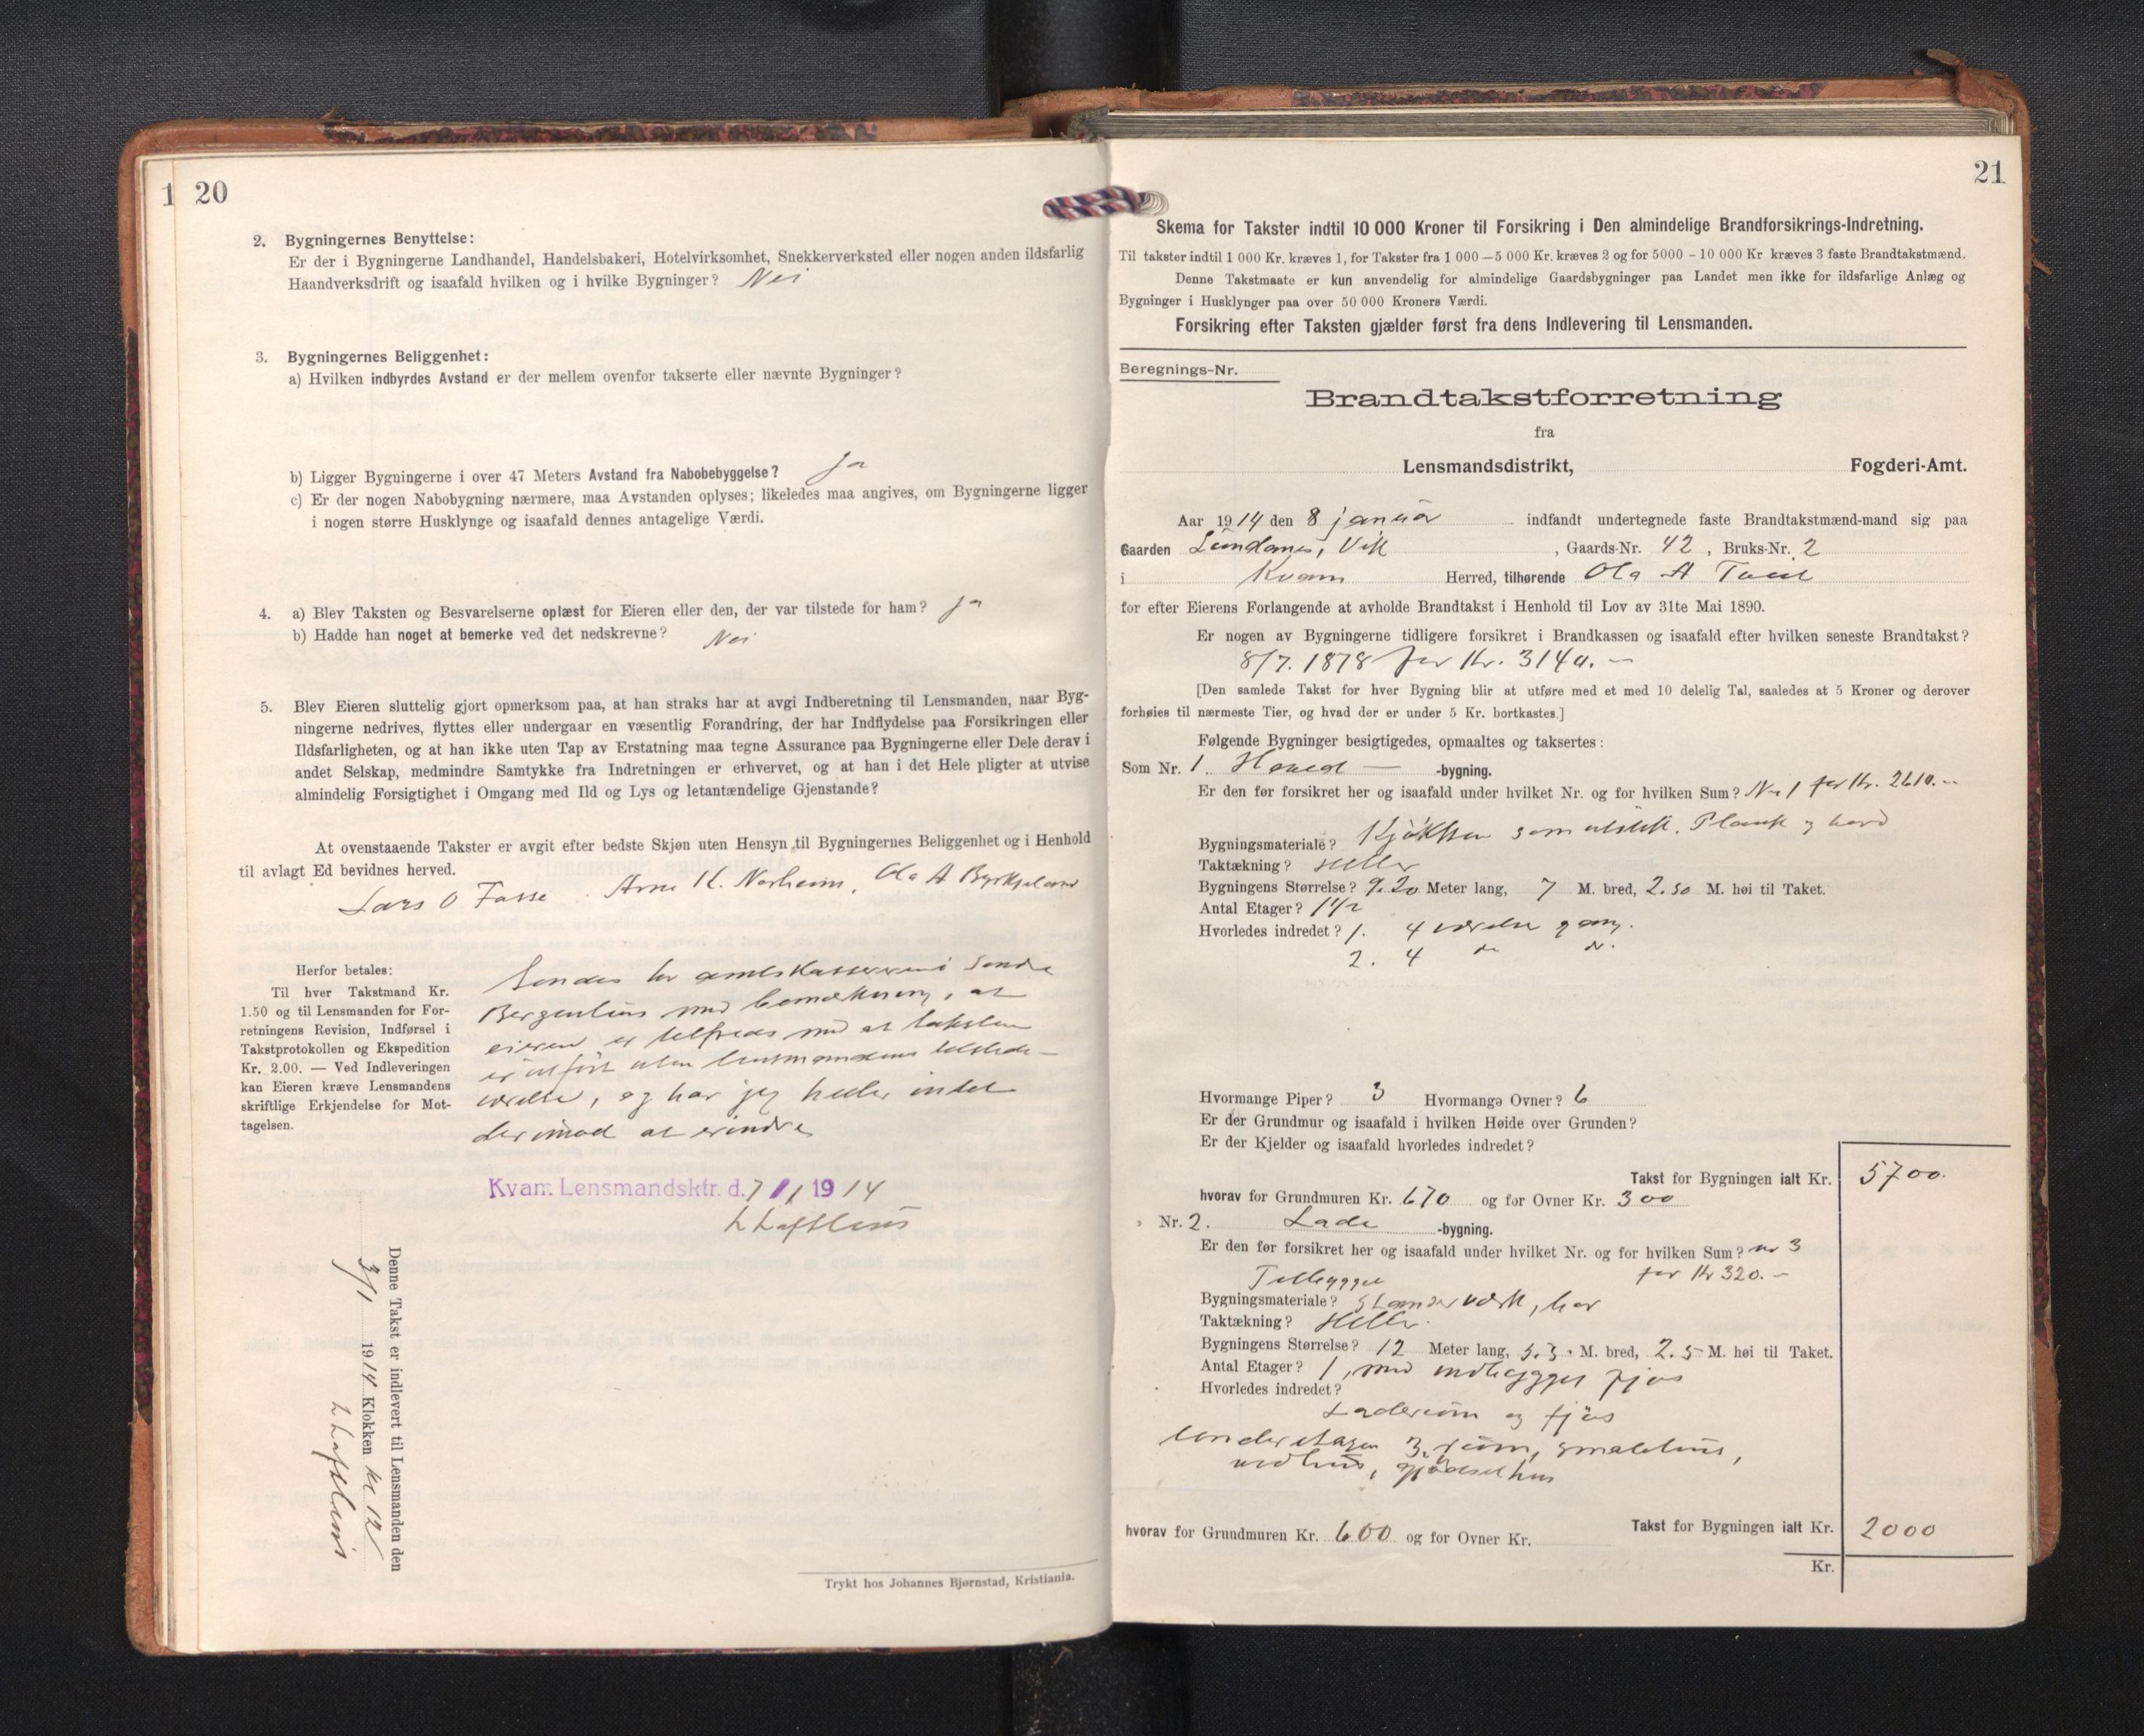 1 20
2. Bygningernes Benyttelse:
Er der i Bygningerne Landhandel, Handelsbakeri, Hotelvirksomhet, Snekkerverksted eller nogen anden ildsfarlig
Haandverksdrift og isaafald hvilken og i hvilke Bygninger? Nei
3. Bygningernes Beliggenhet:
a) Hvilken indbyrdes Avstand er der mellem ovenfor takserte eller nævnte Bygninger?
b) Ligger Bygningerne i over 47 Meters Avstand fra Nabobebyggelse? Ja
c) Er der nogen Nabobygning nærmere, maa Avstanden oplyses; likeledes maa angives, om Bygningerne ligger
i nogen større Husklynge og isaafald dennes antagelige Værdi.
4. a) Blev Taksten og Besvarelserne oplæst for Eieren eller den, der var tilstede for ham? Ja
b) Hadde han noget at bemerke ved det nedskrevne? Nei
5. Blev Eieren sluttelig gjort opmerksom paa, at han straks har at avgi Indberetning til Lensmanden, naar Byg-
ningerne nedrives, flyttes eller undergaar en væsentlig Forandring, der har Indflydelse paa Forsikringen eller
Ildsfarligheten, og at han ikke uten Tap av Erstatning maa tegne Assurance paa Bygningerne eller Dele derav i
andet Selskap, medmindre Samtykke fra Indretningen er erhvervet, og at han i det Hele pligter at utvise
almindelig Forsigtighet i Omgang med Ild og Lys og letantændelige Gjenstande?
At ovenstaaende Takster er avgit efter bedste Skjøn uten Hensyn til Bygningernes Beliggenhet og i Henhold
til avlagt Ed bevidnes herved.
Lars O Fosse. Arne K. Norheim, Ola A Byrkjeland
Herfor betales:
Til hver Takstmand Kr.
1.50 og til Lensmanden for For-
retningens Revision, Indførsel i
Takstprotokollen og Ekspedition
Kr. 2.00. — Ved Indleveringen
kan Eieren kræve Lensmandens
skriftlige Erkjendelse for Mot-
tagelsen.
Sendes hr amtskassereren i Søndre
Bergenhus med bemerkning, at
eieren er tilfreds med at taksten
er utført uten lensmandens tilstede-
værelse, og har jeg heller intet
derimod at erindre
Kvam Lensmandsktr. d. 7/1 1914
Denne Takst er indlevert til Lensmanden den
3/1 1914 Klokken kl 12
Trykt hos Johannes Bjørnstad, Kristiania.
21
Skema for Takster indtil 10 000 Kroner til Forsikring i Den almindelige Brandforsikrings-Indretning.
Til takster indtil 1 000 Kr. kræves 1, for Takster fra 1 000 — 5 000 Kr. kræves 2 og for 5000 - 10 000 Kr kræves 3 faste Brandtakstmænd.
Denne Takstmaate er kun anvendelig for almindelige Gaardsbygninger paa Landet men ikke for ildsfarlige Anlæg og
Bygninger i Husklynger paa over 50 000 Kroners Værdi.
Forsikring efter Taksten gjælder først fra dens Indlevering til Lensmanden.
Beregnings-Nr.
Brandtakstforretning
fra
Lensmandsdistrikt, Fogderi-Amt.
Aar 1914 den 8 januar indfandt undertegnede faste Brandtakstmænd-mand sig paa
Gaarden Lundanes, Vik, Gaards-Nr. 42, Bruks-Nr. 2
i Kvam Herred, tilhørende Ola A
for efter Eierens Forlangende at avholde Brandtakst i Henhold til Lov av 31te Mai 1890.
Er nogen av Bygningerne tidligere forsikret i Brandkassen og isaafald efter hvilken seneste Brandtakst?
8/7. 1878 for Kr. 3140. —
[Den samlede Takst for hver Bygning blir at utføre med et med 10 delelig Tal, saaledes at 5 Kroner og derover
forhøies til nærmeste Tier, og hvad der er under 5 Kr. bortkastes.]
Følgende Bygninger besigtigedes, opmaaltes og taksertes:
Som Nr. 1. Hoved — -bygning.
Er den før forsikret her og isaafald under hvilket Nr. og for hvilken Sum? No 1 for Kr. 2610. —
Bygningsmateriale? Plank og bord
Taktækning? Heller
Bygningens Størrelse? 9.20 Meter lang, 7 M. bred, 2.50 M. høi til Taket.
Antal Etager? 1 1/2
Hvorledes indredet? 1. 4 værelser gang.
2. 4 do do.
Hvormange Piper? 3 Hvormange Ovner? 6
Er der Grundmur og isaafald i hvilken Høide over Grunden?
Er der Kjelder og isaafald hvorledes indredet?
Takst for Bygningen ialt Kr. 5700.
hvorav for Grundmuren Kr. 670 og for Ovner Kr. 300
Nr. 2. Lade -bygning.
Er den før forsikret her og isaafald under hvilket Nr. og for hvilken Sum? no 3
Tilbygget for Kr 320. —
Bygningsmateriale? Standerværk, bor
Taktækning? Heller.
Bygningens Størrelse? 12 Meter lang, 5.3. M. bred, 2.5 M. høi til Taket.
Antal Etager? 1, med indbygget fjøs
Hvorledes indredet?
Laderum og fjøs
underetagen 3 rum, smalehus,
vedhus, gjødselhus
Takst for Bygningen ialt Kr. 2000
hvorav for Grundmuren Kr. 600 og for Ovner Kr.
Kr.